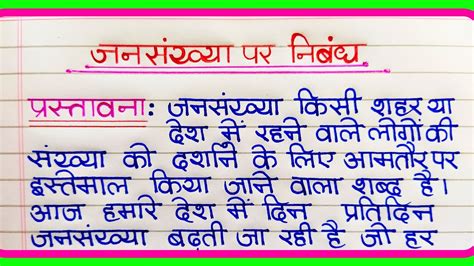 जनसंख्या पर निबंध
प्रस्तावना: जनसंख्या किसी शहर या
देश में रहने वाले लोगों की
संख्या को दर्शाने के लिए आमतौर पर
इस्तेमाल किया जाने वाला शब्द है।
आज हमारे देश में दिन प्रतिदिन
जनसंख्या बढ़ती जा रही है जो हर